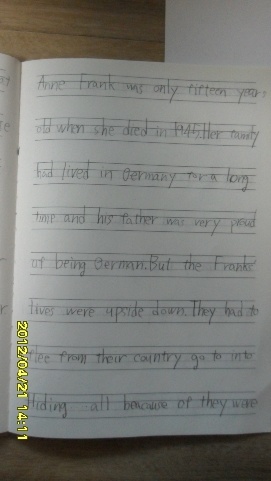 Anne Frank was only fifteen years
old when she died in 1945. Her family
had lived in Germany for a long
time and his father was very proud
of being German. But the Franks'
lives were upside down. They had to
flee from their country go to into
Hiding all beacause of they were
2012/04/21 14:11